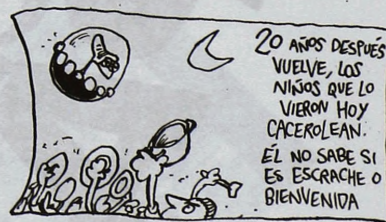 20 AÑOS DESPUÉS
VUELVE, LOS
NIÑOS QUE LO
VIERON HOY
CACEROLEAN.
ÉL NO SABE SI
ES ESCRACHE O
BIENVENIDA